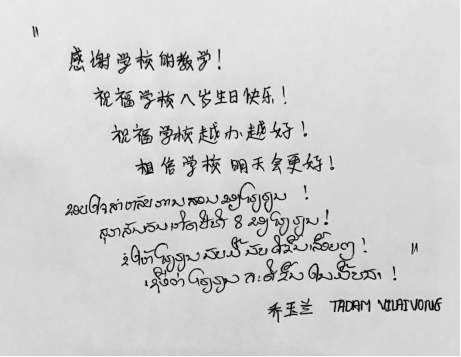 "
感谢学校的教学！
祝福学校八岁生日快乐！
祝福学校越办越好！
相信学校明天会更好！
ຂອບໃຈສຳຫລັບການສອນຂອງໂຮງຮຽນ !
ສຸກສັນວັນເກີດປີທີ 8 ຂອງໂຮງຮຽນ!
ຂໍໃຫ້ໂຮງຮຽນນັບມື້ນັບດີຂຶ້ນເລື້ອຍໆ !
ເຊື່ອວ່າໂຮງຮຽນຈະດີຂຶ້ນ !
"
乔玉兰 TADAM VILAIVONG